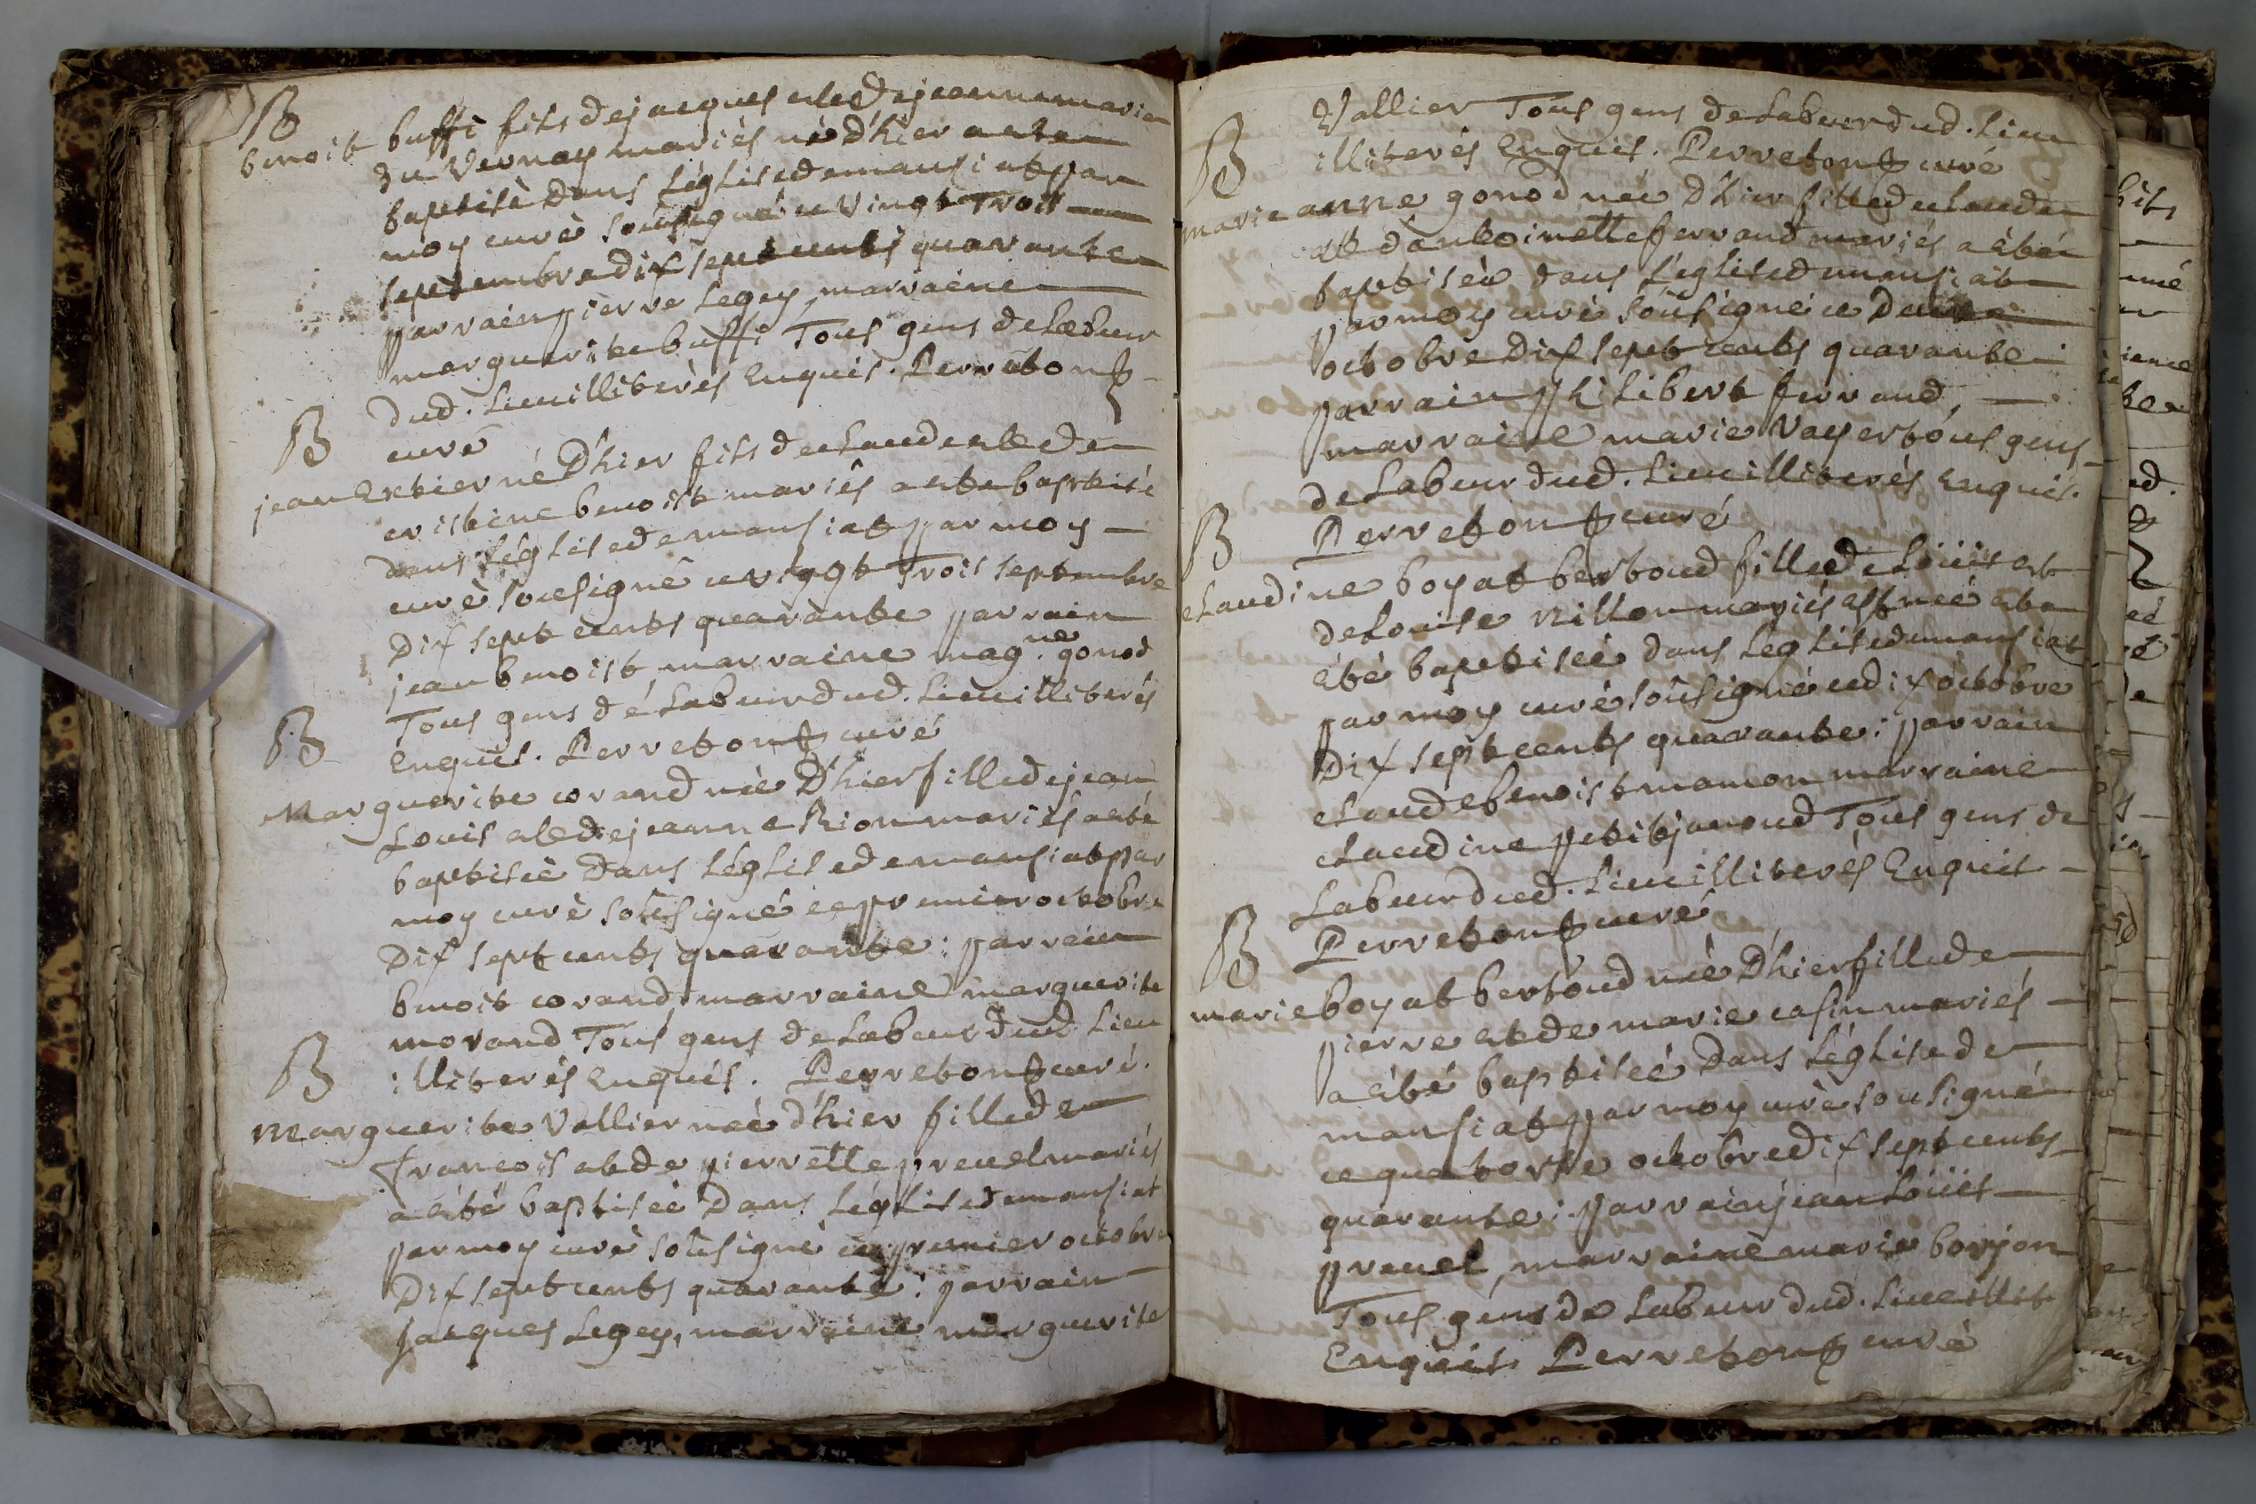 B
benoit buffi fils de jacques et de jeanne marie
du Vernay mariés né d'hier a ete
baptisé dans l'église de mansiat par
moy curé sousigné ce vingt Trois
septembre dix sept cents quarante
parrain pierre Legey, marraine
marguerite buffi Tous gens de Labeur
dud. Lieu illiterés Enquis. Perreton
curé
B
jean Extier né D'hier fils de claude et de
cristine benoist mariés a ete baptisé
dans l'église de mansiat par moy
curé sousigné ce vingt Trois septembre
Dix sept cents quarante parrain
jean benoist, marraine mag.ne gonod
Tous gens de Labeur dud. Lieu illiterés
Enquis. Perreton curé
B
Marguerite corand née D'hier fille de jean
Louis et de jeanne Rion mariés a eté
baptisée Dans l'église de mansiat par
moy curé sousigné ce premier octobre
Dix sept cents quarante : parrain
benoit corand, marraine marguerite
morand Tous gens de Labeur dud Lieu
illiterés Enquis. Perreton curé.
B
Marguerite Vallier née d'hier fille de
francois et de pierrette preuel mariés
a été baptisée Dans l'église de mansiat
par moy curé sousigné ce premier octobre
Dix sept cents quarante : parrain
Jacques Legey, marraine marguerite
Vallier Tous gens de Labeur dud. Lieu
illiterés Enquis. Perreton curé
B
marie anne gonod née D'hier fille de claude
et d'antoinette ferrand mariés a été
baptisée dans l'église de mansiat
par moy curé sousigné ce Deux
octobre Dix sept cents quarante
parrain philibert ferrand,
marraine marie Vayer tous gens
de Labeur dud. Lieu illiterés Enquis.
Perreton curé
B
claudine boyat bertoud fille de Loüis et
de Louise nillon mariés est née et a
été baptisée dans l'église de mansiat
par moy curé sousigné ce dix octobre
Dix sept cents quarante : parrain
claude benoist mamon marraine
claudine petitjanoud Tous gens de
Labeur dud. Lieu illiterés Enquis
Perreton curé
B
marie boyat bertoud née D'hier fille de
pierre et de marie casin mariés
a été baptisée Dans l'église de
mansiat par moy curé sousigné
ce quatorze octobre dix sept cents
quarante : parrain jean Loüis
preuel, marraine marie borjon
Tous gens de Labeur dud. Lieu illit
Enquis Perreton curé